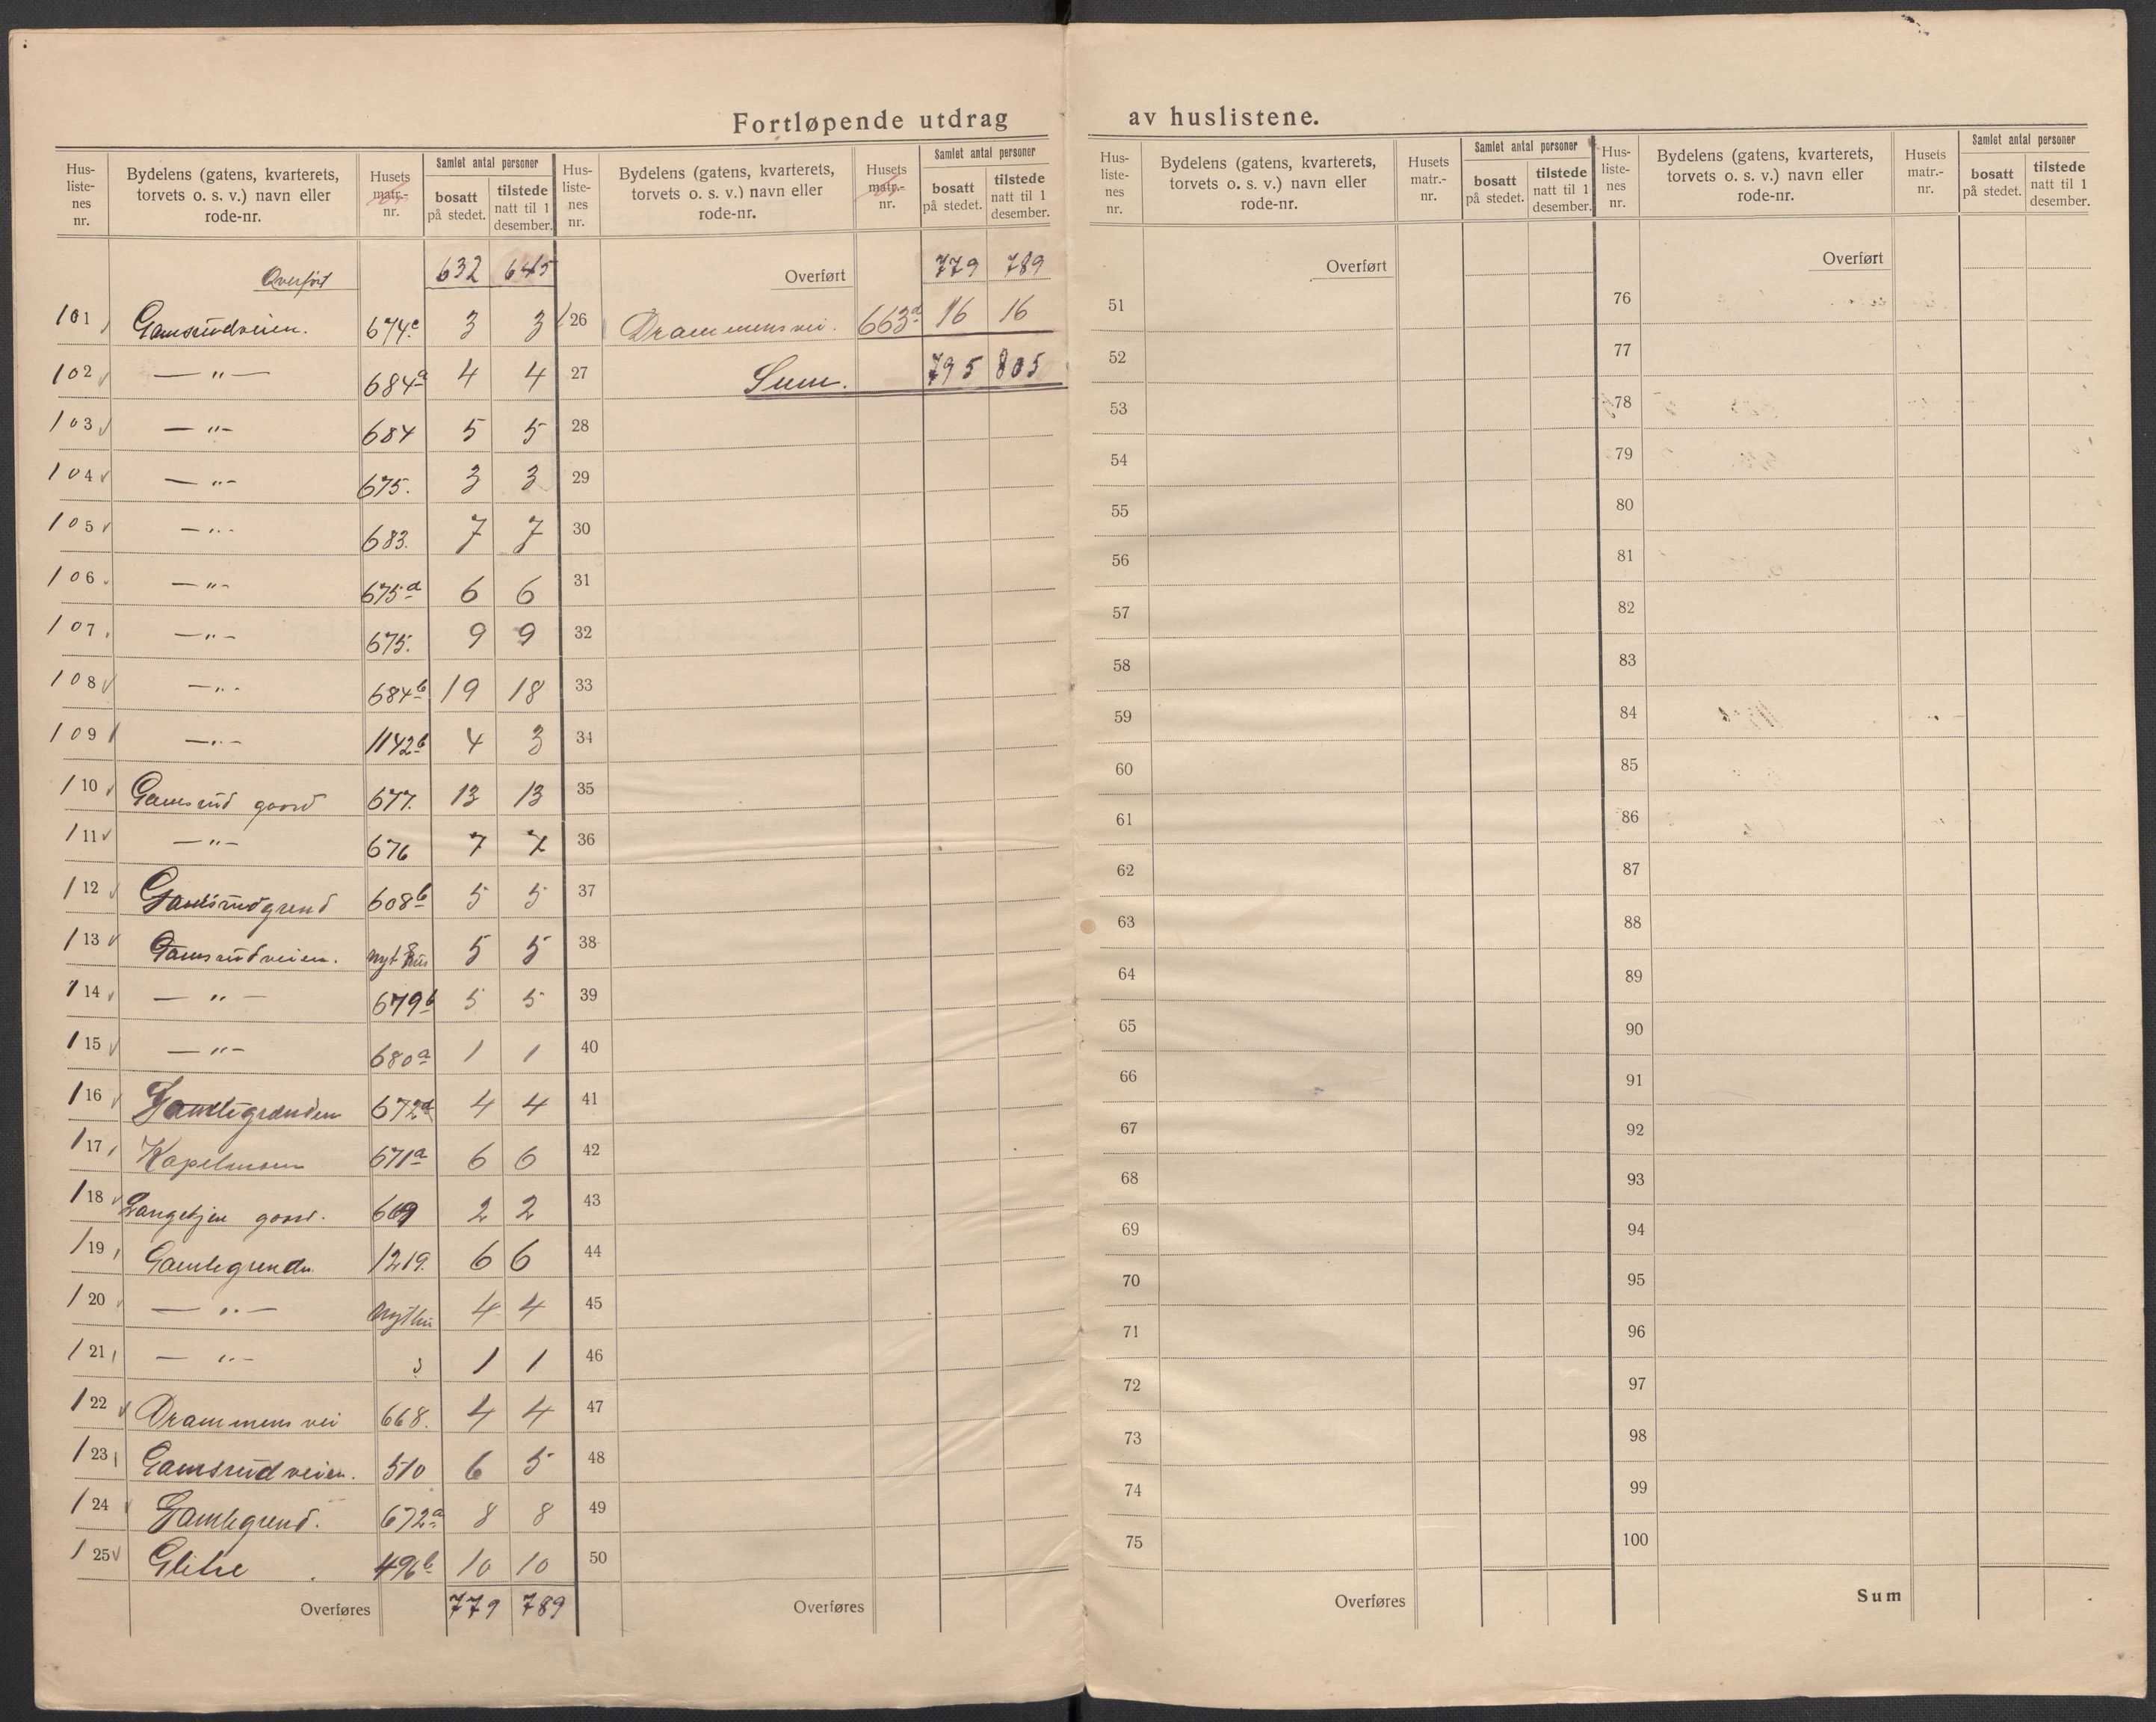 Fortløpende utdrag av huslistene.
Hus-listenes nr. | Bydelens (gatens, kvarterets, torvets o. s. v.) navn eller rode-nr. | Husets matr.-nr. | Samlet antal personer bosatt på stedet. | tilstede natt til 1 desember.
Overført 632 645
101 Gamsrudveien. 674c 3 3
102 — " — 684a 4 4
103 — " — 684 5 5
104 — " — 675. 3 3
105 — " — 683. 7 7
106 — " — 675d 6 6
107 — " — 675. 9 9
108 — " — 684b 19 18
109 — " — 1142b 4 3
110 Gamsrud gaard 677. 13 13
111 — " — 676 7 7
112 Gamsrudgrend 608b 5 5
113 Gamsrudveien. nyt hus 5 5
114 — " — 679b 5 5
115 — " — 680a 1 1
116 Gamlegrænden 672d 4 4
117 Kapelmoen 671a 6 6
118 Langekjen gaard. 669 2 2
119 Gamlegrendn 1219. 6 6
120 — " — Nyt hu 4 4
121 — " — 1 1
122 Drammensvei 668. 4 4
123 Gamsrudveien. 510 6 5
124 Gamlegrend. 672a 8 8
125 Glitre 496b 10 10
Overføres 779 789
Hus-listenes nr. | Bydelens (gatens, kvarterets, torvets o. s. v.) navn eller rode-nr. | Husets matr.-nr. | Samlet antal personer bosatt på stedet. | tilstede natt til 1 desember.
Overført 779 789
126 Drammensvei. 663d 16 16
27 Sum. 795 805
28
29
30
31
32
33
34
35
36
37
38
39
40
41
42
43
44
45
46
47
48
49
50
Overføres
Hus-listenes nr. | Bydelens (gatens, kvarterets, torvets o. s. v.) navn eller rode-nr. | Husets matr.-nr. | Samlet antal personer bosatt på stedet. | tilstede natt til 1 desember.
Overført
51
52
53
54
55
56
57
58
59
60
61
62
63
64
65
66
67
68
69
70
71
72
73
74
75
Overføres
Hus-listenes nr. | Bydelens (gatens, kvarterets, torvets o. s. v.) navn eller rode-nr. | Husets matr.-nr. | Samlet antal personer bosatt på stedet. | tilstede natt til 1 desember.
Overført
76
77
78
79
80
81
82
83
84
85
86
87
88
89
90
91
92
93
94
95
96
97
98
99
100
Sum